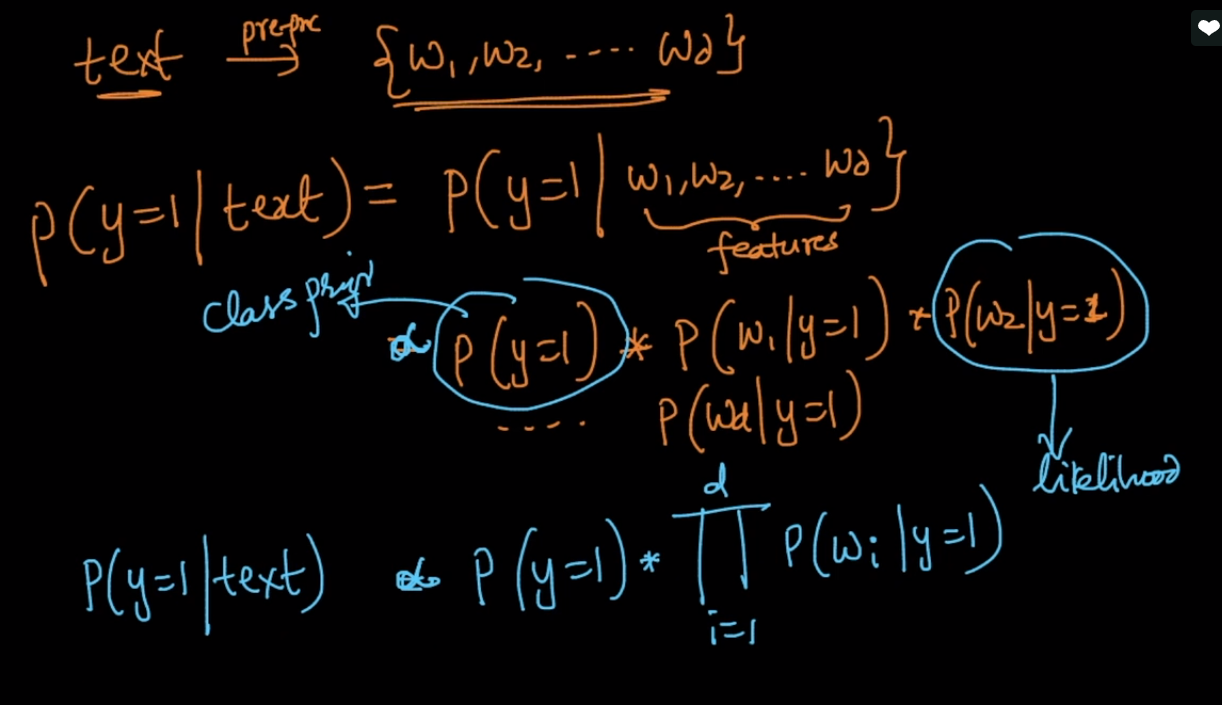 text pre-prc → {w1, w2, ---- wd}
P(y=1|text) = P(y=1| w1, w2, .... wd}
features
class prior
∝ P(y=1) * P(w1|y=1) * P(w2|y=1)
.... P(wd|y=1)
likelihood
P(y=1|text) ∝ P(y=1) * ∏ P(wi|y=1)
d
i=1